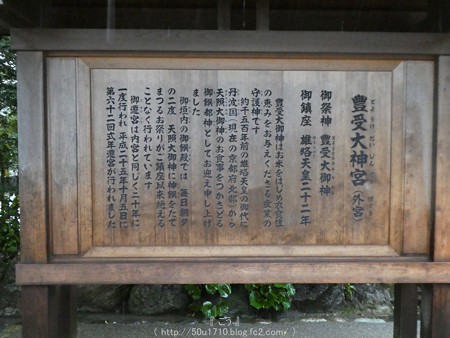 豊受大神宮（外宮）
とようけだいじんぐう
げくう
御祭神　豊受大御神
御鎮座　雄略天皇二十二年
豊受大御神はお米をはじめ衣食住
の恵みをお与えくださる産業の
守護神です
約千五百年前の雄略天皇の御代に
丹波国（現在の京都府北部）から
天照大御神のお食事をつかさどる
御饌都神としてお迎え申し上げ
ました
御垣内の御饌殿では　毎日朝夕
の二度　天照大御神に神饌をたて
まつるお祭りがご鎮座以来絶える
ことなく行われています
御遷宮は内宮と同じく二十年に
一度行われ　平成二十五年十月五日に
第六十二回式年遷宮が行われました
( http://50u1710.blog.fc2.com/ )